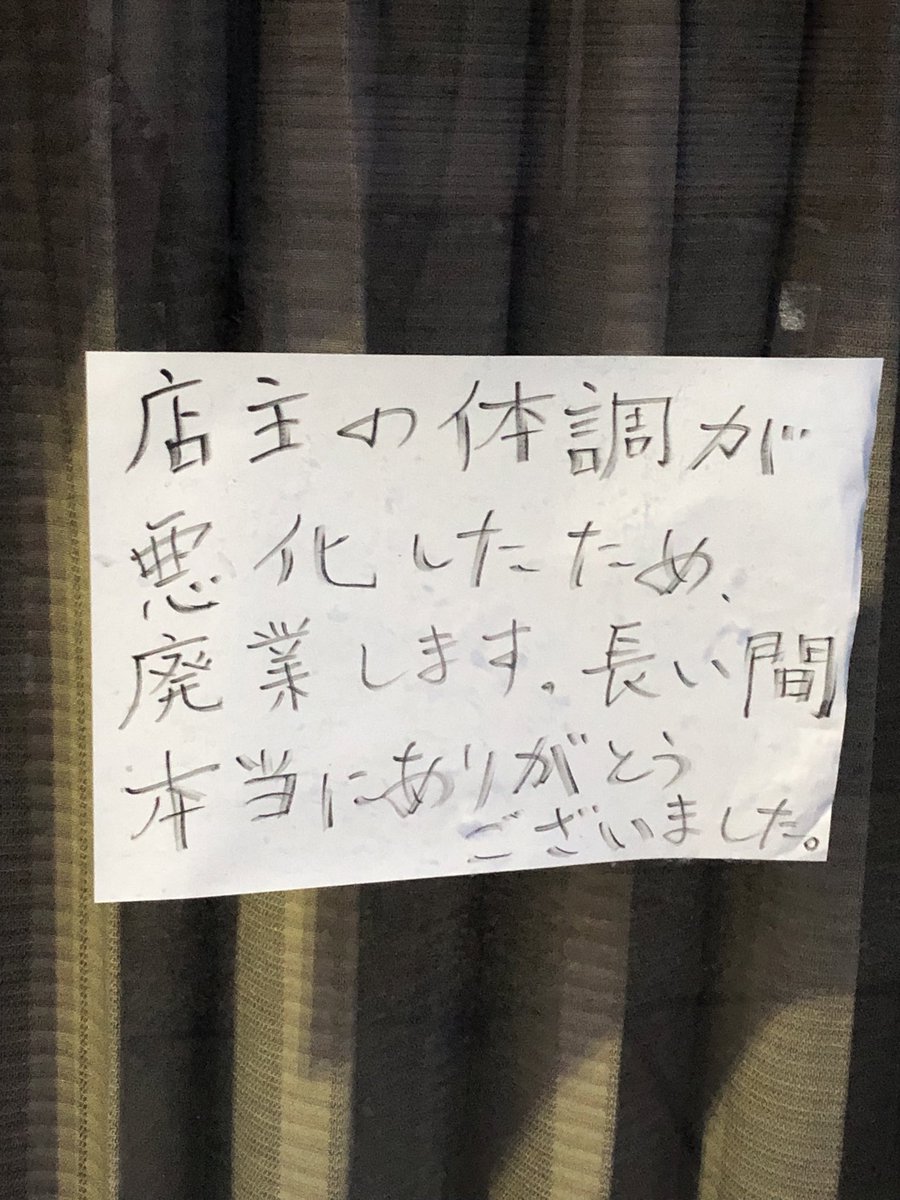 店主の体調が
悪化したため、
廃業します。長い間
本当にありがとう
ございました。